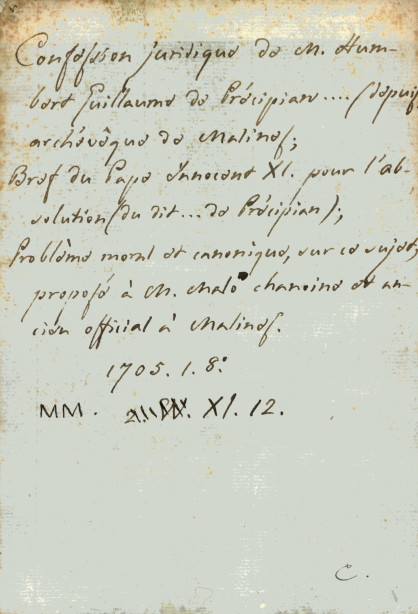 Confession juridique de M. Hum-
bert Guillaume de Précipian .... (depuis
archévêque de Malines;
Bref du Pape Innocent XI. pour l'ab-
solution (du dit ... de Précipian);
Problème moral et canonique, sur ce sujet,
proposé à M. Malo chanoine et an-
cien official à Malines.
1705. 1. 8.°
MM. XI. 12.
C.